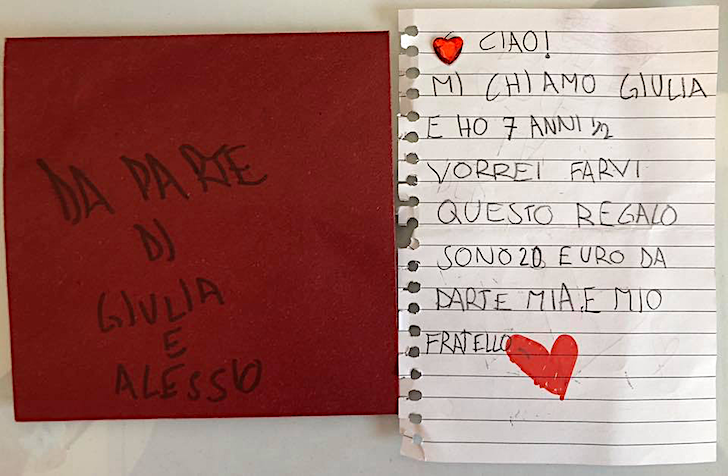 DA PARTE
DI
GIULIA
E
ALESSIO
CIAO!
MI CHIAMO GIULIA
E HO 7 ANNI 1/2
VORREI FARVI
QUESTO REGALO
SONO 20 EURO DA
PARTE MIA E MIO
FRATELLO